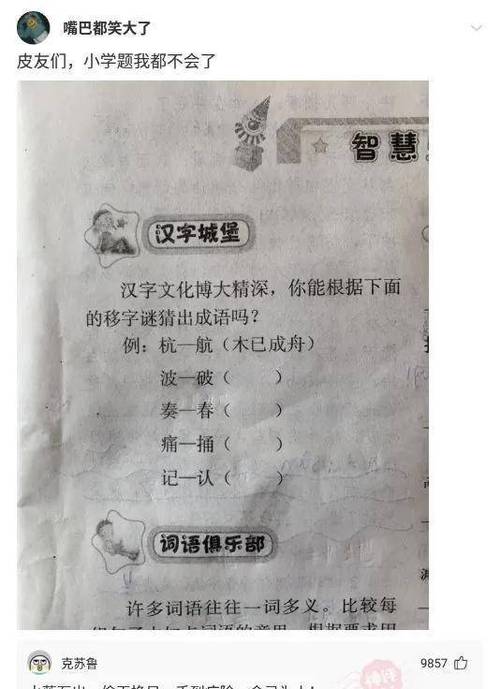 嘴巴都笑大了
皮友们，小学题我都不会了
智慧
汉字城堡
汉字文化博大精深，你能根据下面
的移字谜猜出成语吗？
例：杭—航（木已成舟）
波—破（ ）
奏—春（ ）
痛—捅（ ）
记—认（ ）
词语俱乐部
许多词语往往一词多义。比较每
克苏鲁
9857